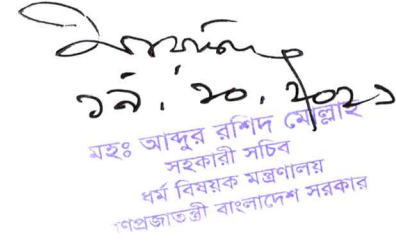 ১৯.১০.২০২১
মহঃ আব্দুর রশিদ মোল্লাহ
সহকারী সচিব
ধর্ম বিষয়ক মন্ত্রণালয়
গণপ্রজাতন্ত্রী বাংলাদেশ সরকার